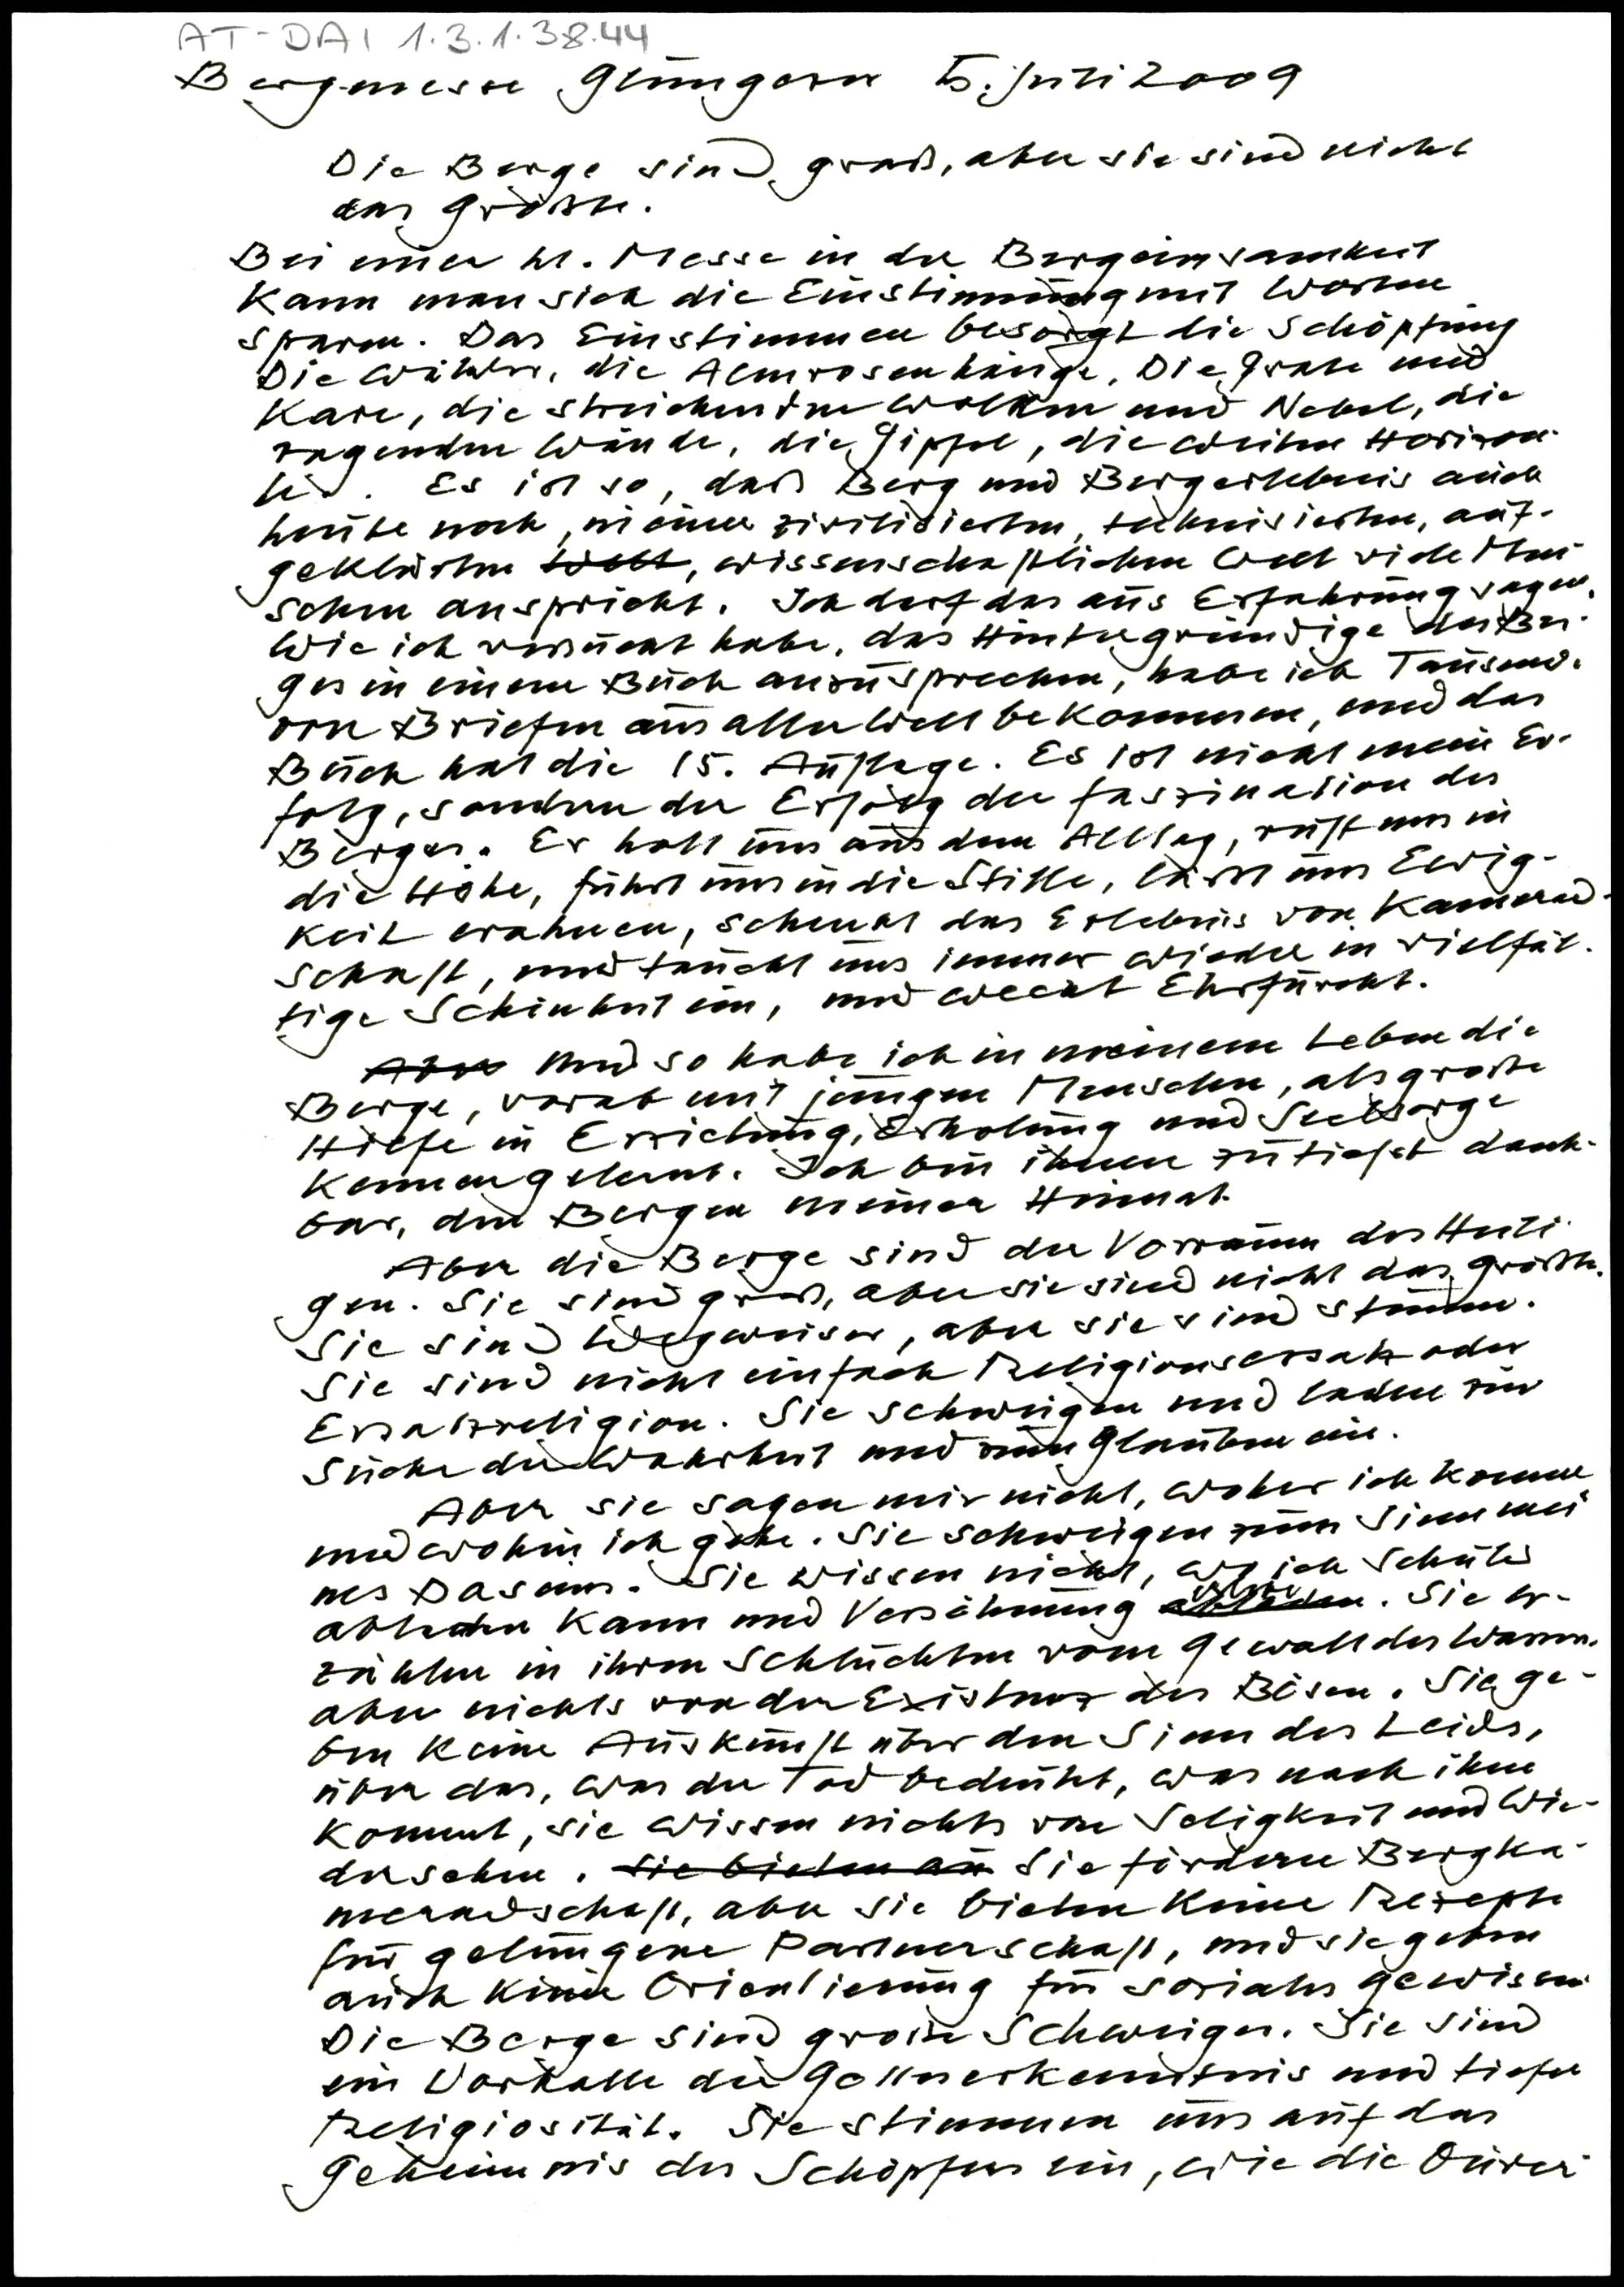 AT-DAI 1.3.1.38.44
Bergmesse Glungezer 5. Juli 2009
Die Berge sind groß, aber sie sind nicht
das Größte.
Bei einer hl. Messe in der Bergeinsamkeit
kann man sich die Einstimmung mit Worten
sparen. Das Einstimmen besorgt die Schöpfung
Die Wälder, die Almrosenhänge, Die Grate und
Kare, die streichenden Wolken und Nebel, die
ragenden Wände, die Gipfel, die weiten Horizon-
te. Es ist so, daß Berg und Bergerlebnis auch
heute noch, in einer zivilisierten, technisierten, auf-
geklärten Welt, wissenschaftlichen Welt viele Men-
schen anspricht. Ich darf das aus Erfahrung sagen.
Wie ich versucht habe, das Hintergründige des Ber-
ges in einem Buch anzusprechen, habe ich Tausend.
von Briefen aus aller Welt bekommen, und das
Buch hat die 15. Auflage. Es ist nicht mein Er-
folg, sondern der Erfolg der Faszination des
Berges. Er holt uns aus dem Alltag, ruft uns in
die Höhe, führt uns in die Stille, lässt uns Ewig-
keit erahnen, schenkt das Erlebnis von Kamerad-
schaft, und taucht uns immer wieder in vielfäl-
tige Schönheit ein, und weckt Ehrfurcht.
Aber Und so habe ich in meinem Leben die
Berge, vorab mit jungen Menschen, als große
Hilfe in Erziehung, Erholung und Seelsorge
kennengelernt. Ich bin ihnen zutiefst dank-
bar, den Bergen meiner Heimat.
Aber die Berge sind der Vorraum des Heili-
gen. Sie sind groß, aber sie sind nicht das größte.
Sie sind Wegweiser, aber sie sind stumm.
Sie sind nicht einfach Religionsersatz oder
Ersatzreligion. Sie schweigen und laden zur
Suche der Wahrheit und zum Glauben ein.
Aber sie sagen mir nicht, woher ich komme
und wohin ich gehe. Sie schweigen zum Sinn mei
nes Daseins. Sie wissen nicht, wo ich Schuld
abladen kann und Versöhnung abladen. Sie er-
zählen in ihren Schluchten vom Gewalt des Wassers.
aber nichts von der Existenz des Bösen. Sie ge-
ben keine Auskunft über den Sinn des Leids,
über das, was der Tod bedeutet, was nach ihm
kommt, sie wissen nichts von Seligkeit und Wie-
dersehen. Sie bieten an Sie fördern Bergka-
meradschaft, aber sie bieten keine Rezepte
für gelungene Partnerschaft, und sie geben
auch keine Orientierung für soziales Gewissen.
Die Berge sind große Schweiger. Sie sind
ein Vorhalle der Gotteserkenntnis und tiefer
Religiosität. Sie stimmen uns auf das
Geheimnis des Schöpfers ein, wie die